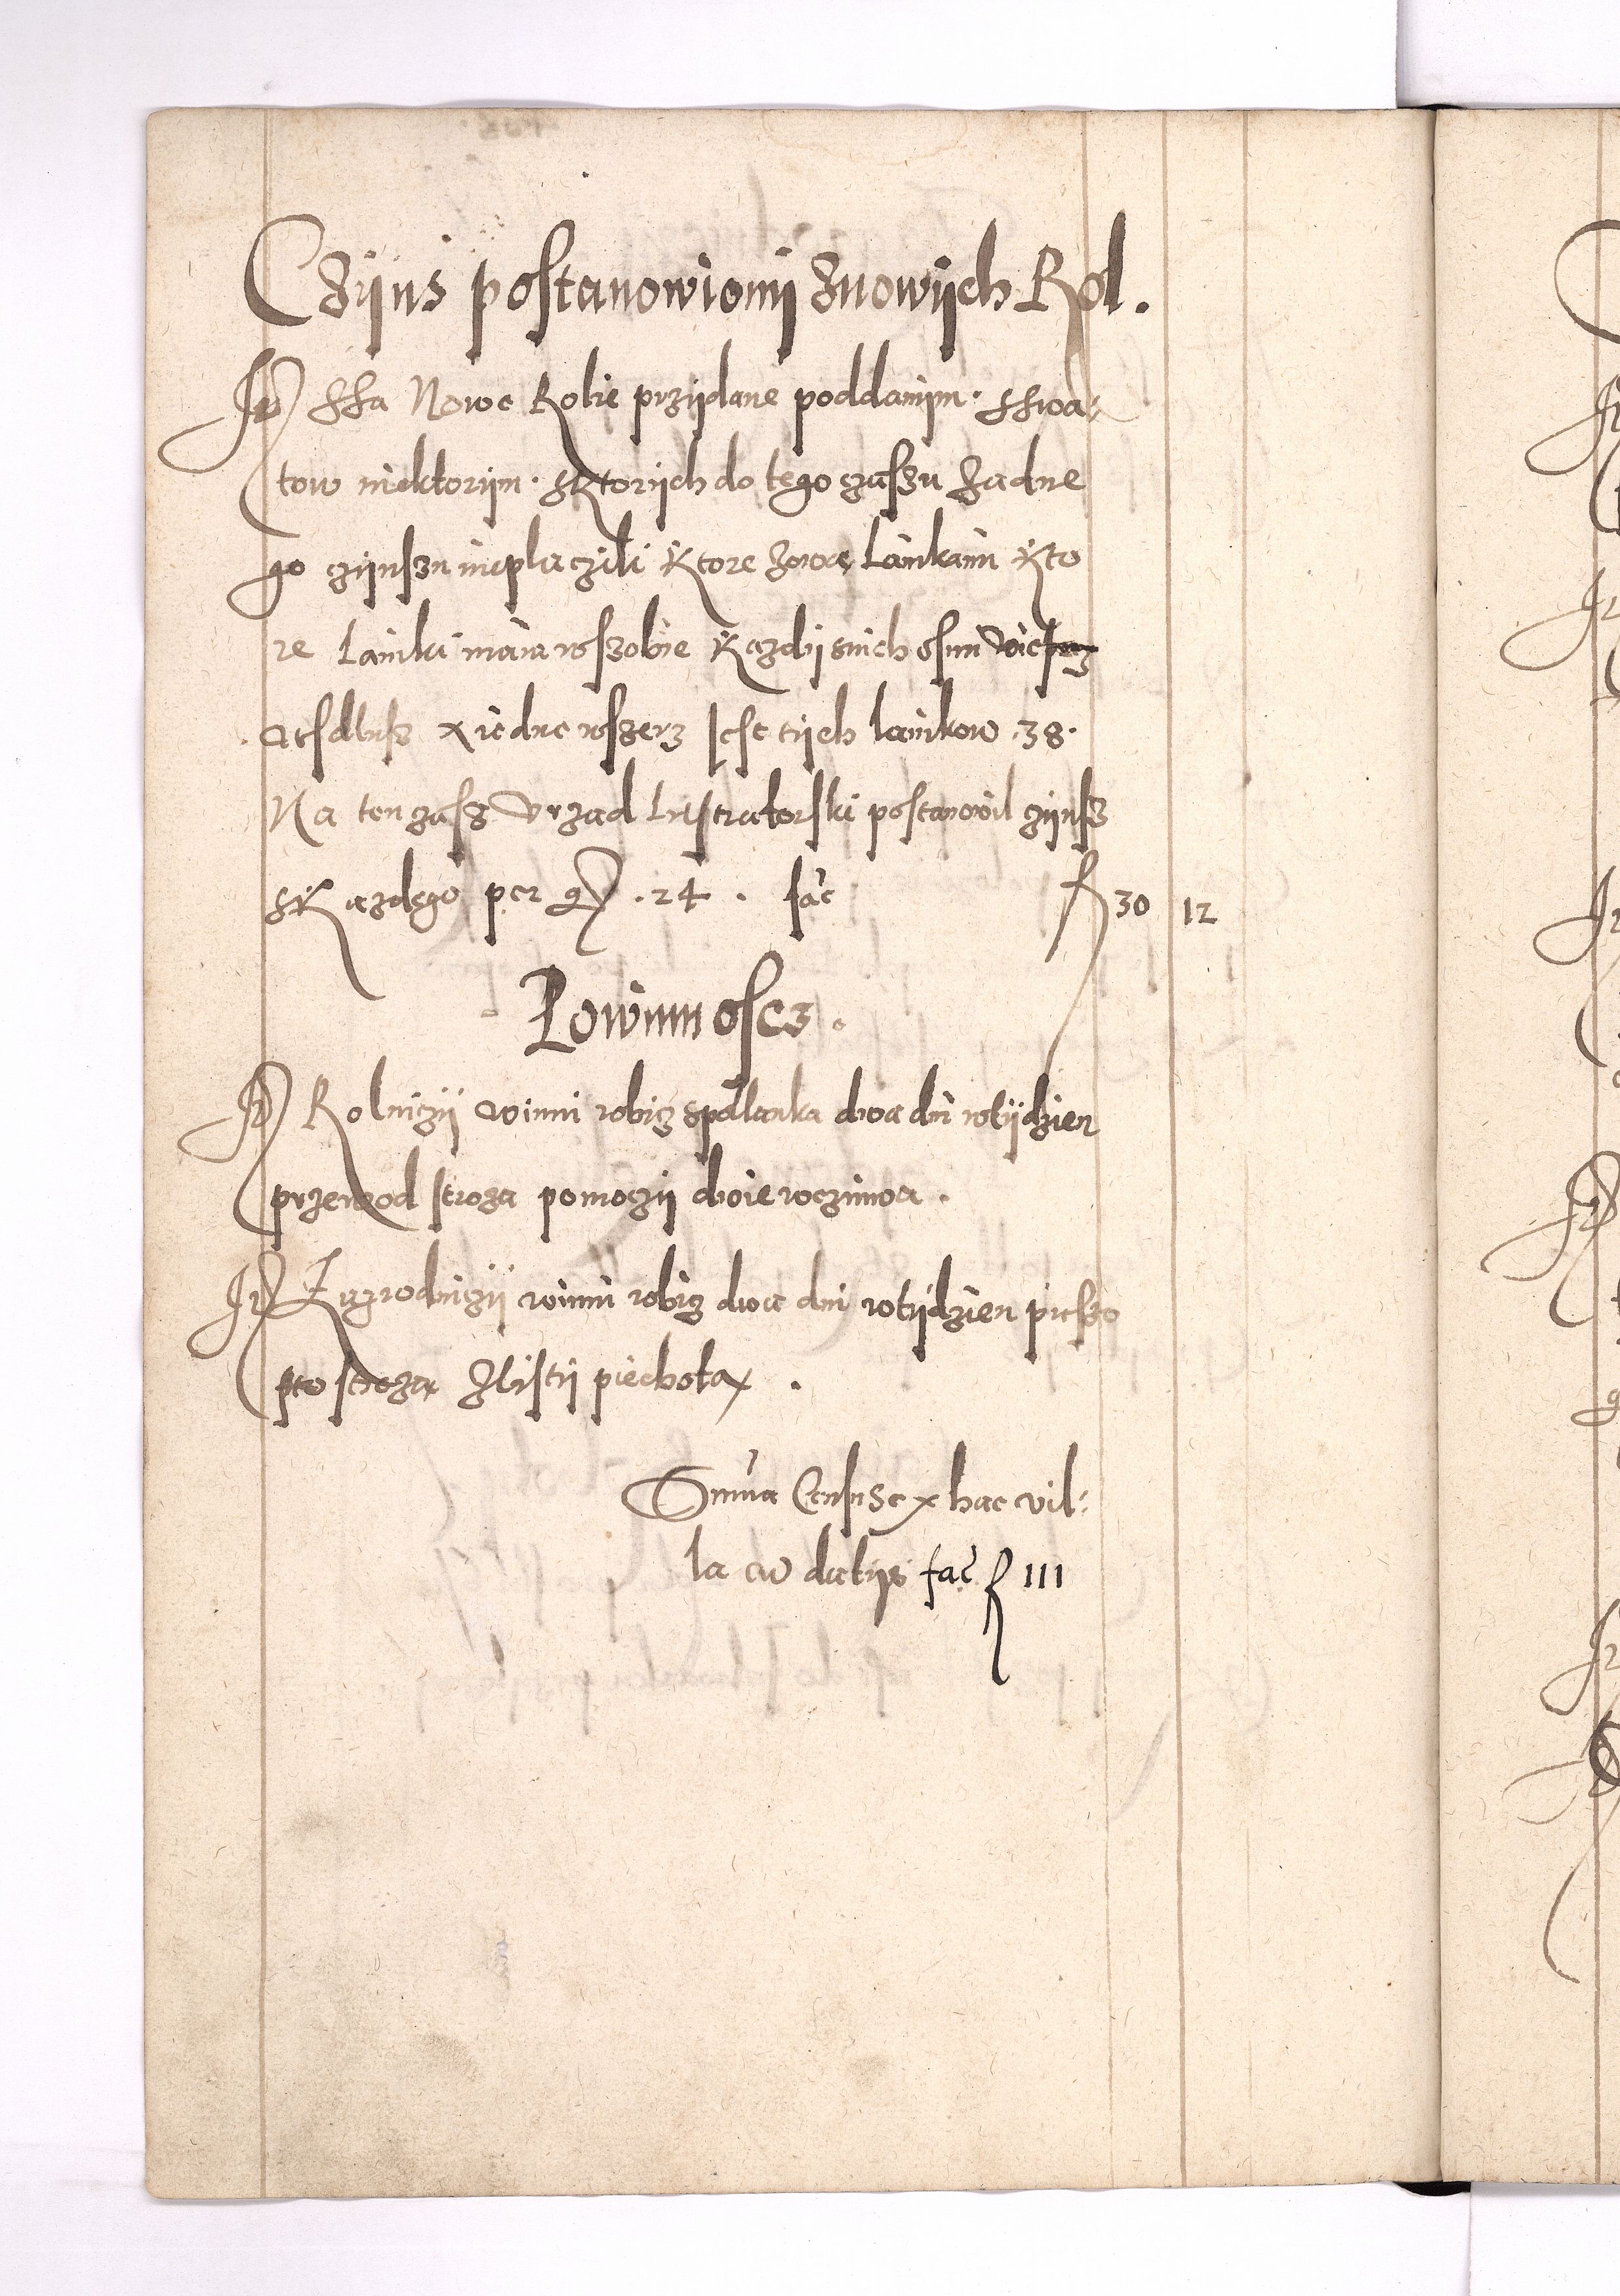 Czijns postanowionij znowijch Rol.
It ssa Nowe Rolie przijdane poddanijm. sswa-
tow niektorijm. sktorijch do tego czassu zadne
go czijnszu nieplaczili ktore zowa Lanikami kto
re Laniki maia wszobie kazdij snich osmi
wsdlusz x iedne wszerz Jest tijch lanikow .38.
Na ten czassz Vrzad Lustratorski postanowil czijnsz
skazdego per gr .24. fac fl 30 12
Powinnoscz.
It Rolniczij winni robicz spullanka dwa dni wtijdzien
przewod stroza pomoczij dwoie roczimoa.
It Zagrodniczij winni robicz dwa dni wtijdzien pieszo
stroza zlistij piechota.
Summa Census ex hac vil-
la cum datijs fac fl 111